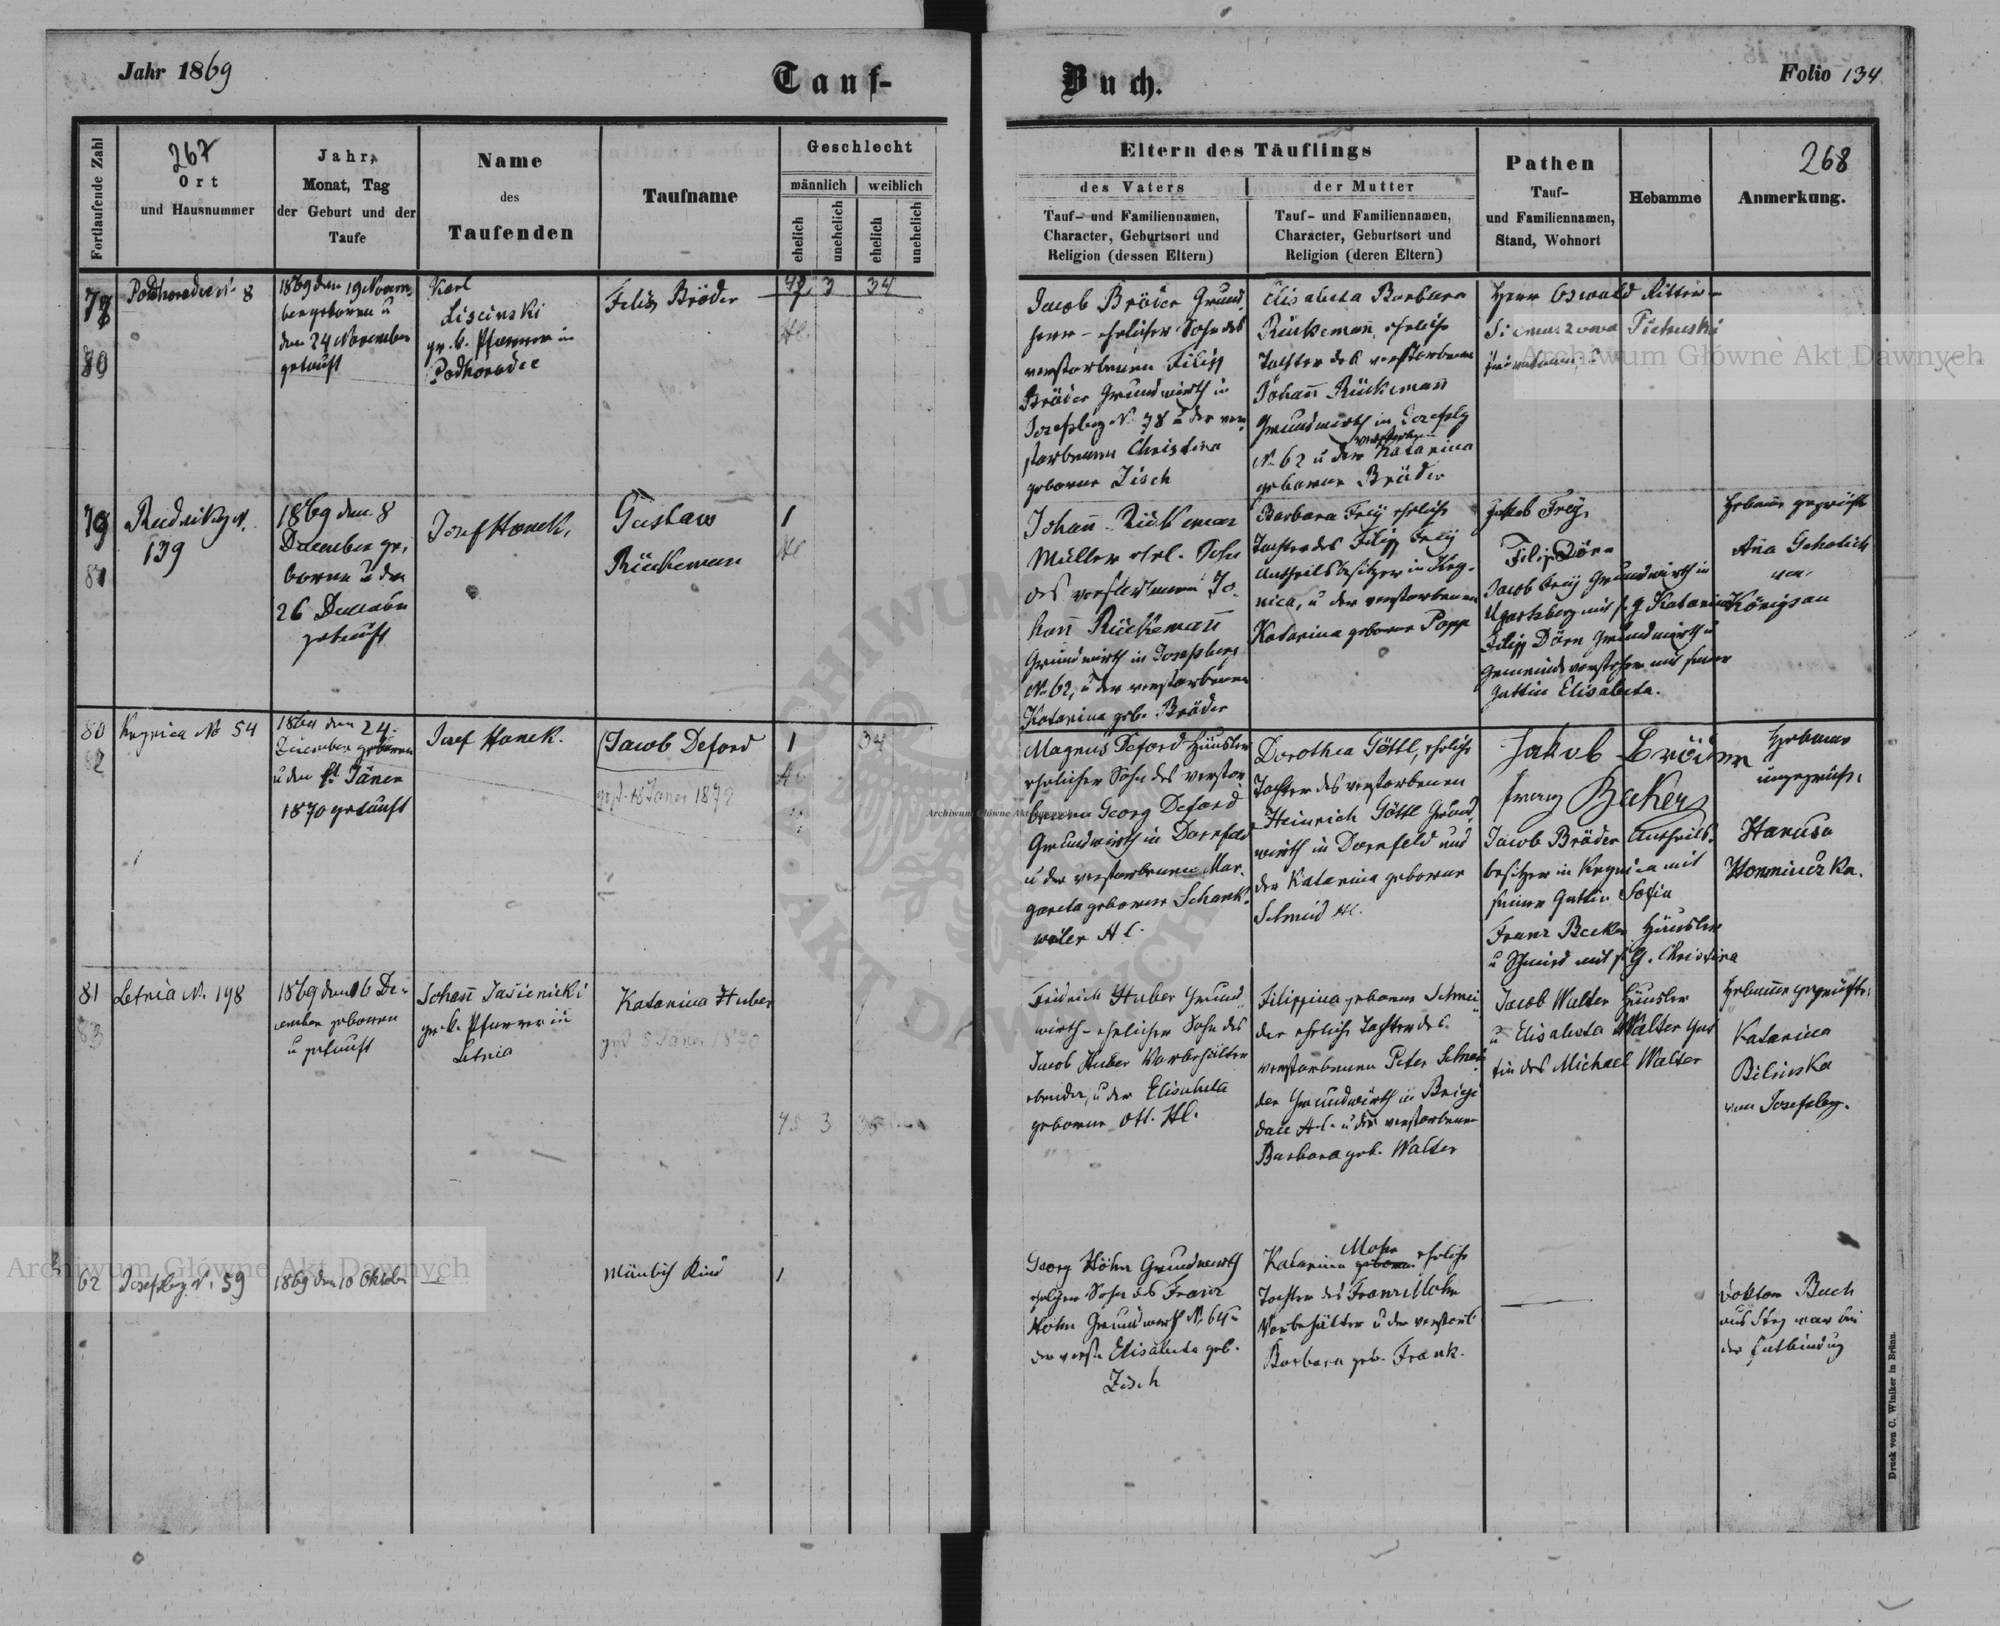 Jahr 1869
Tauf-
Buch.
Folio 134
Fortlaufende Zahl
267
Ort
und Hausnummer
Jahr,
Monat, Tag
der Geburt und der
Taufe
Name
des
Taufenden
Taufname
Geschlecht
männlich
weiblich
ehelich
unehelich
ehelich
unehelich
Eltern des Täuflings
des Vaters
der Mutter
Tauf- und Familiennamen,
Character, Geburtsort und
Religion (dessen Eltern)
Tauf- und Familiennamen,
Character, Geburtsort und
Religion (deren Eltern)
Pathen
Tauf-
und Familiennamen,
Stand, Wohnort
Hebamme
268
Anmerkung.
80
8
1869 den 19 Novem,
ber geboren u
den 24 November
getauft
Karl
Liscinski
gr. k. Pfarrer in
Podhorodce
Felix Bröder
3 34
Jacob Bröder Grund
herr - ehelicher Sohn des
verstorbenen Filipp
Bröder Grundwirth in
Josefsbg N. 78 u der ver
storbenen Christina
geborene Zisch
Elisabeta Barbara
Rückemann, eheliche
Tochter des verstorbenen
Johann Rückemann
Grundwirth in Josefsbg
verstorbenen
N. 62 u der Katarina
geborene Bröder
Herr Oswald Ritter
79
81
139
1869 den 8
December ge,
boren u den
26 December
getauft
Josef Hanek,
Gustaw
Rückeman
1
Johann Rückeman
Müller ehel. Sohn
des verstorbenen Jo,
hann Rückemann
Grundwirth in Josefsberg
N. 62, u der verstorbenen
Katarina geb. Bröder
Barbara Frey eheliche
Tochter des Filipp Frey
Antheilsbesitzer in Keg-
nica, u der verstorbenen
Katarina geborene Popp
Jakob Frey,
Filip Dörn
Jacob Frey Grundwirth in
Ugartsberg mit s. g Katarina
Filipp Dörn Grundwirth u
Gemeindevorsteher mit seiner
Gattin Elisabeta.
Hebamme geprüft
Anna
von
Königsau
80
82
N 54
1869 den 24.
December geboren
u den Jäner
1870 getauft
Josef Hanek.
Jacob Deford
1
34
Magnus Deford Häusler
ehelicher Sohn des verstor
benen Georg Deford
Grundwirth in Dornfeld
u der verstorbenen Mar,
gareta geborene Schank,
weiler H C.
Dorothea Göttl, eheliche
Tochter des verstorbenen
Heinrich Göttl Grund,
wirth in Dornfeld und
der Katarina geborene
Schmid
Jakob Bröder
Franz Becker
Jacob Bröder Antheils,
besitzer in mit
seiner Gattin Sofia
Franz Becker Häusler
u Schmied mit s. G. Christina
Hebamme
ungeprüft,
Hanusa
81
83
Letnia N. 198
1869 den 16 De-
cember geboren
u getauft
Johann Jasienicki
gr. k. Pfarrer in
Letnia
Katarina Huber
3
Fridrich Huber Grund
wirth - ehelicher Sohn des
Jacob Huber Vorbehälter
u der Elisabeta
geborene Ott. H C.
Filippina geborene Schnei
der eheliche Tochter des
verstorbenen Peter Schnei
der Grundwirth in Brigi
dau H C. u der verstorbenen
Barbara geb. Walter
Jacob Walter Häusler
u Elisabeta Walter Gat
tin des Michael Walter
Hebamme geprüfte,
Katarina
Bilinska
von Josefsbg.
62
Josefsbg N. 59
1869 den 10 Oktober
—
Mänlich Kind
1
Georg Höhn Grundwirth
ehelicher Sohn des Franz
Höhn Grundwirth N. 64 u
der verst. Elisabeta geb.
Zisch
Mohr
Katarina geboren eheliche
Tochter des Franz Mohr
Vorbehälter u der verstorb
Barbara geb. Frank.
—
Doktor Buch
aus Stryj war bei
der Entbindung
Druck von C. Winiker in Brünn.
Archiwum Główne Akt Dawnych
Archiwum Główne Akt Dawnych
Archiwum Główne Akt Dawnych
ARCHIWUM
AKT DAWNYCH